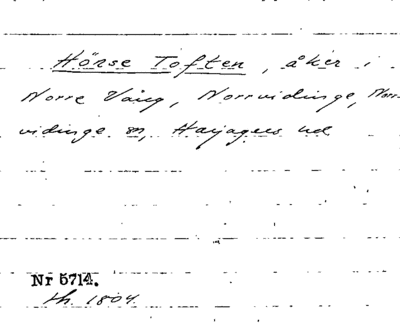 Hönse Toften, åker i
Norre Vång, Norrvidinge, Norr-
vidinge sn, Harjagers hd
Nr 5714.
th. 1804.